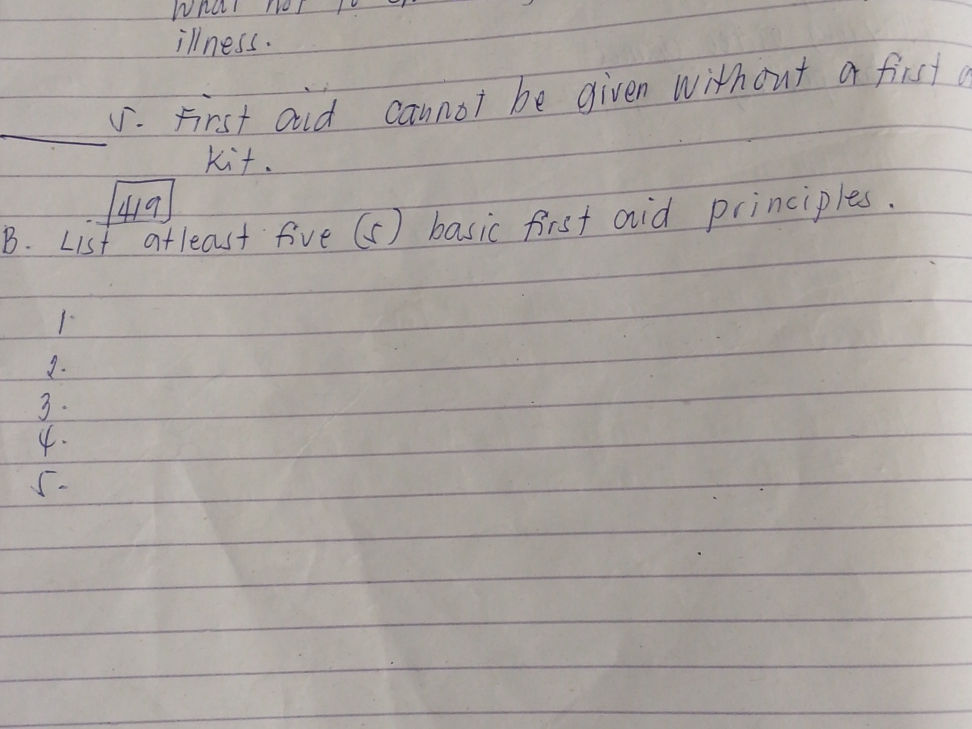 What not to
illness.
5. First aid cannot be given without a first
kit.
419
B. List atleast five (5) basic first aid principles.
1.
2.
3.
4.
5.